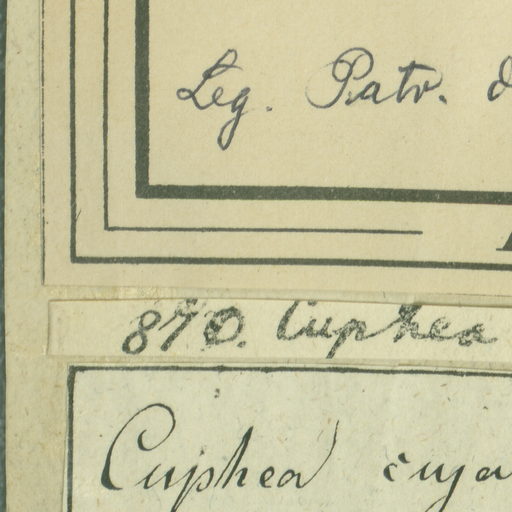 Leg. Patr.
870. Cuphea
Cuphea cya